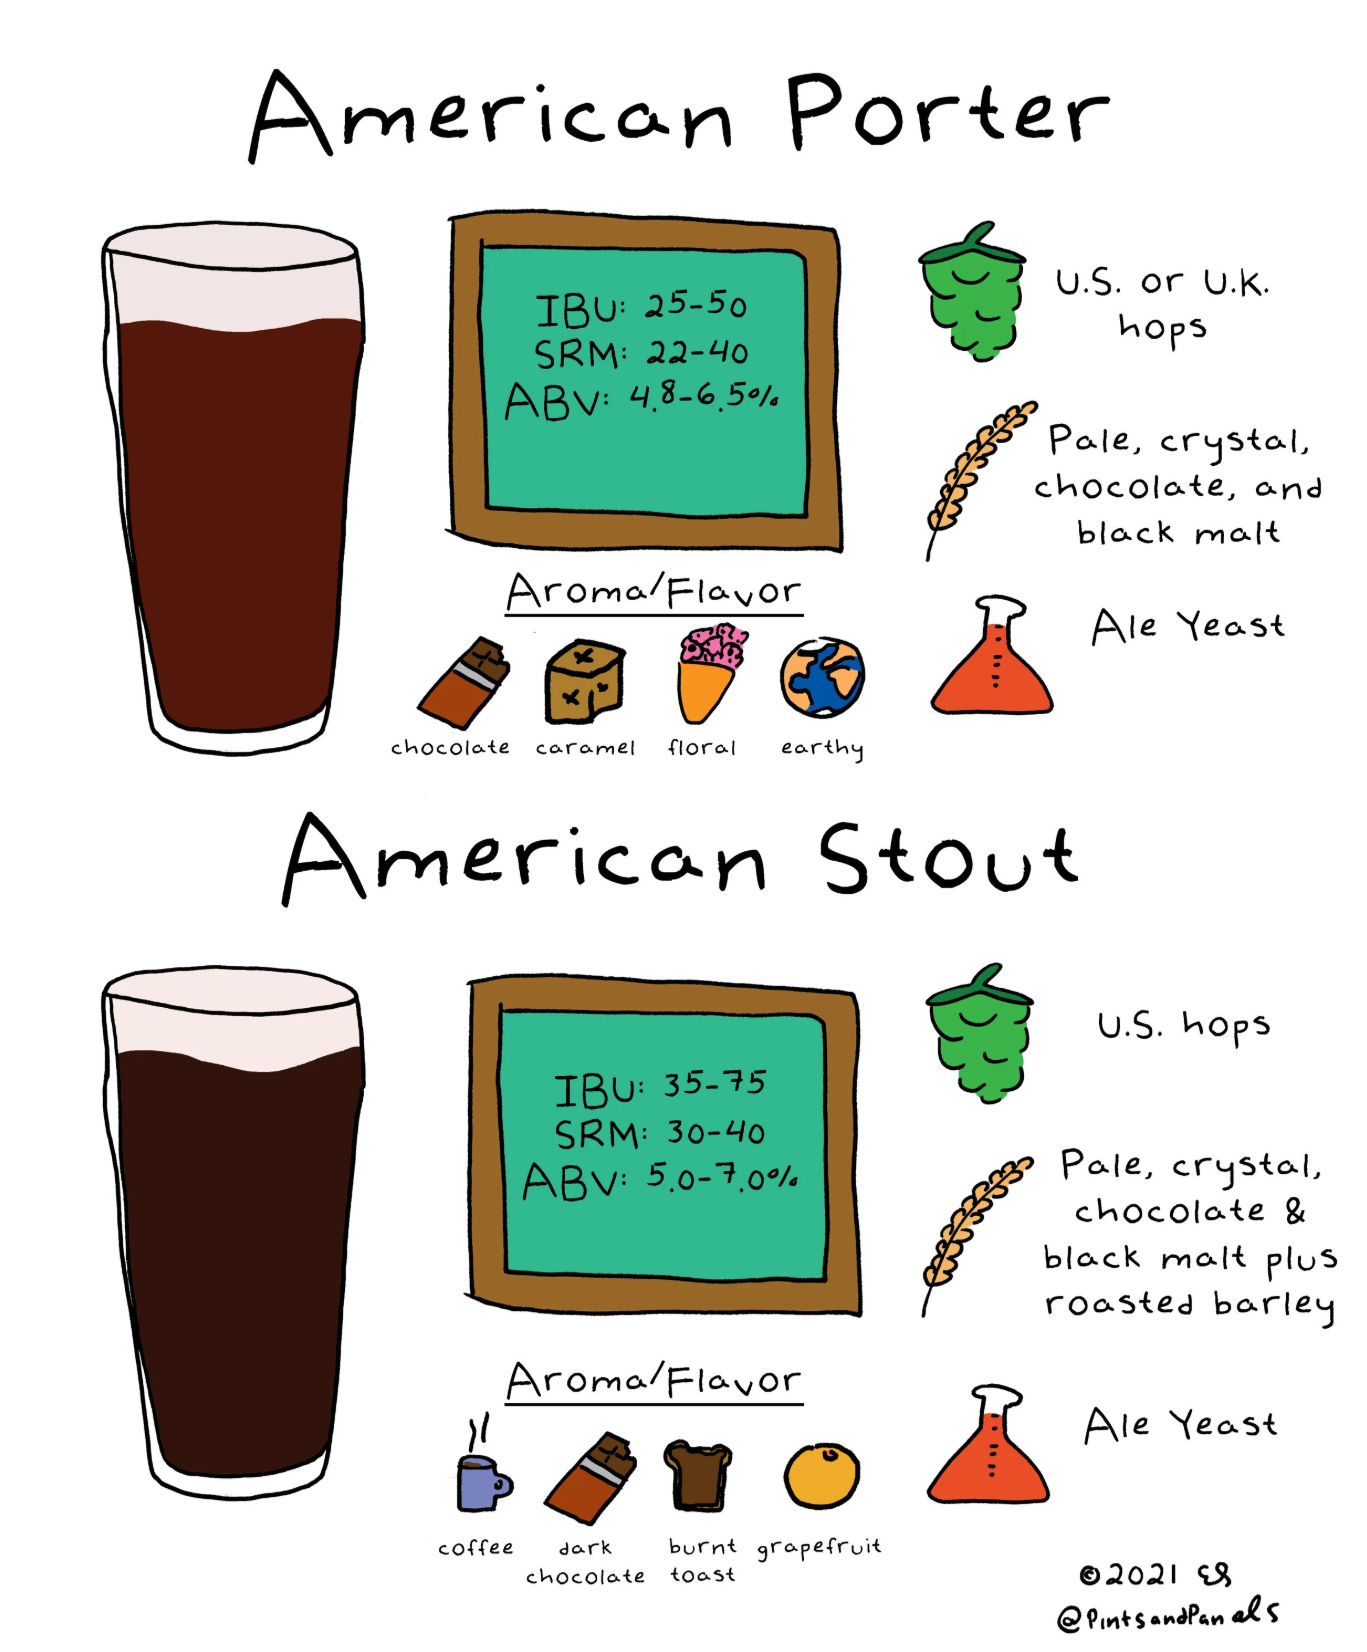 American Porter
IBU: 25-50
SRM: 22-40
ABV: 4.8-6.5%
U.S. or U.K.
hops
Pale, crystal,
chocolate, and
black malt
Ale Yeast
Aroma/Flavor
chocolate caramel floral earthy
American Stout
IBU: 35-75
SRM: 30-40
ABV: 5.0-7.0%
U.S. hops
Pale, crystal,
chocolate &
black malt plus
roasted barley
Ale Yeast
Aroma/Flavor
coffee dark burnt grapefruit
chocolate toast
©2021 ES
@PintsandPanels